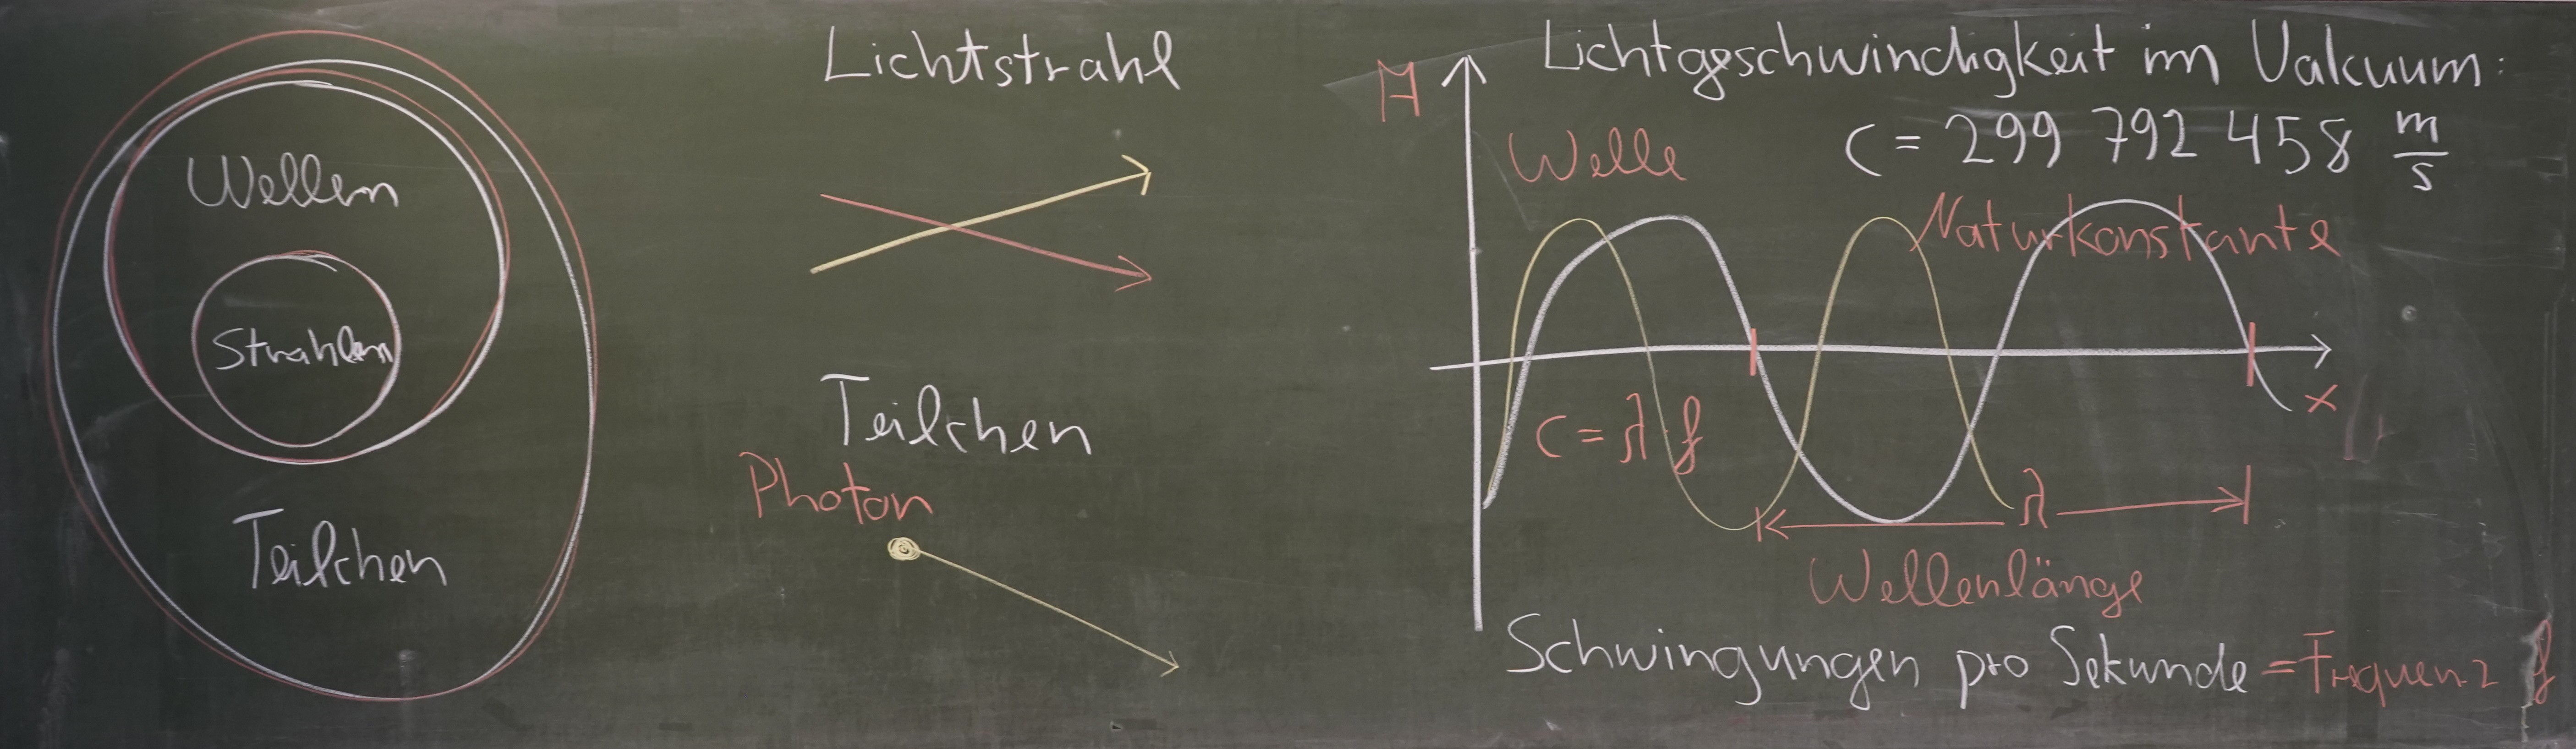 Wellen
Strahlen
Teilchen
Lichtstrahl
Teilchen
Photon
Lichtgeschwindigkeit im Vakuum:
c = 299 792 458 m/s
Naturkonstante
Welle
c = λ · f
x
λ
Wellenlänge
Schwingungen pro Sekunde = Frequenz f